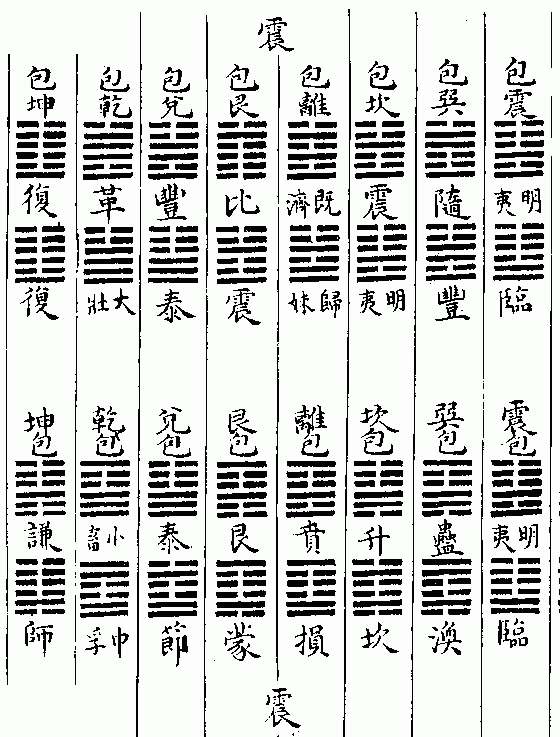 震
包震 包巽 包坎 包離 包艮 包兌 包乾 包坤
明夷 隨 震 既濟 比 豐 革 復
臨 豐 明夷 歸妹 震 泰 大壯 復
震包 巽包 坎包 離包 艮包 兌包 乾包 坤包
明夷 蠱 升 賁 艮 泰 小畜 謙
臨 渙 坎 損 蒙 節 中孚 師
震